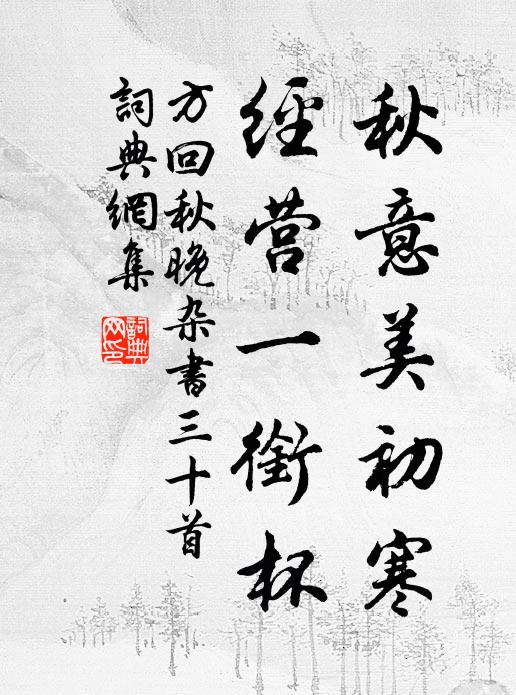 秋意美初寒
經营一銜杯
方回秋晚杂書三十首
詞典網集
詞典網印